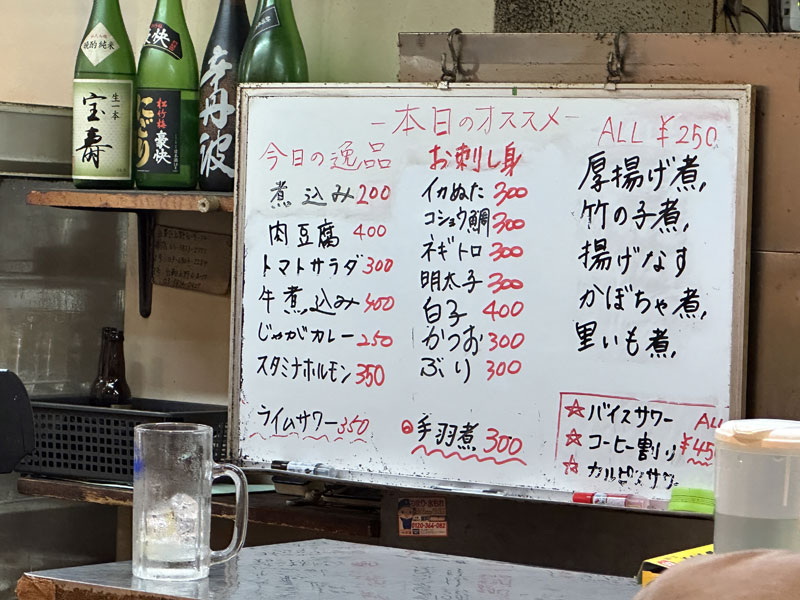 晩酌純米
生一本
宝寿
豪快
松竹梅
豪快
にごり
辛丹波
-本日のオススメ-
今日の逸品
煮込み 200
肉豆腐 400
トマトサラダ 300
牛煮込み 400
じゃがカレー 250
スタミナホルモン 350
ライムサワー 350
お刺し身
イカぬた 300
コショウ鯛 300
ネギトロ 300
明太子 300
白子 400
かつお 300
ぶり 300
手羽煮 300
ALL ¥250
厚揚げ煮,
竹の子煮,
揚げなす
かぼちゃ煮,
里いも煮,
☆バイスサワー
☆コーヒー割り
☆カルピスサワー
ALL
¥45